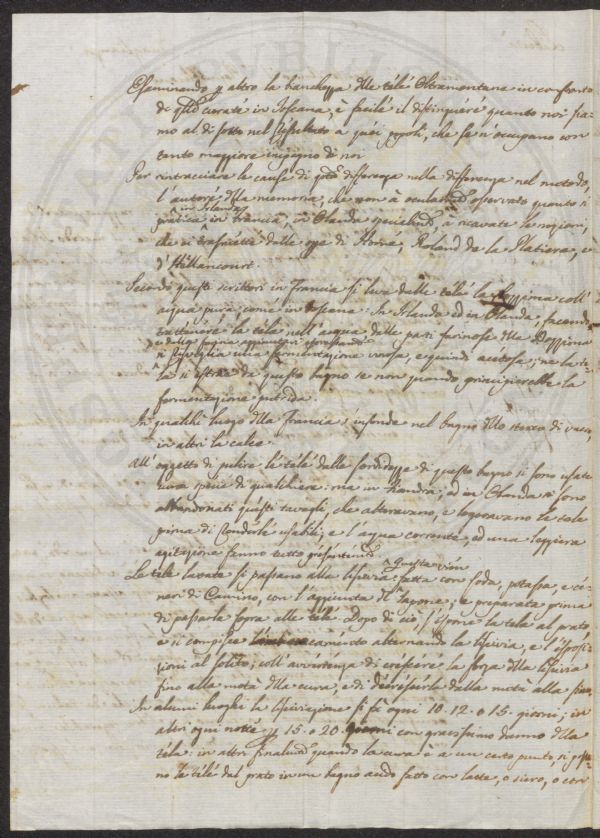 Esaminando p altro la bianchezza delle tele Oltramontane in confronto
di qlle curate in Toscana, è facile il distinguere quanto noi sia-
mo al di sotto nel resultato a quei popoli, che se n'occupano con
tanto maggiore impegno di noi
Per rintracciare le cause di qta differenza nella differenza nel metodo,
l'autore della memoria, che non à ocularmte osservato quanto si
in Irlanda
pratica in Francia, in Olanda specialmte, à ricavate le nozioni,
che ci trasmette dalle opere di Home, Roland de la Platiera, e
d'Hillancourt.
Secondo questi scrittori in Francia si lava dalle tele la bozzima coll'
acqua pura, come in Toscana. In Irlanda ed in Olanda, facendo
trattenere la tela nell'acqua, dalle parti farinose della bozzima
e della farina aggiuntavi espressamte
si sveglia una fermentazione vinosa, e quindi acetosa; ne la te-
la si estrae da questo bagno se non quando principierebbe la
fermentazione putrida.
In qualche luogo della Francia s'infonde nel bagno dello sterco di vacca,
in altri la calce.
All'oggetto di pulire le tele dalle sordidezze di questo bagno si sono usate
varie specie di gualchiere: ma in Irlanda, ed in Olanda si sono
abbandonati questi travagli, che alteravano, e logoravano le tele
prima di renderle usabili; e l'acqua corrente, ed una leggiera
agitazione fanno tutto presentemte
Questa vien
Le tele lavate si passano alla lisciva fatta con soda, potassa, e ce-
neri di Camino, con l'aggiunta di sapone; e preparata prima
di passarla sopra alle tele. Dopo di ciò s'espone la tela al prato,
e si compisce alternando la lisciva, e l'esposi-
zioni al solito; coll'avvertenza di crescere la forza della lisciva
fino alla metà della cura, e di decrescerla dalla metà alla fine.
In alcuni luoghi la liscivazione si fa ogni 10. 12. o 15. giorni; in
altri ogni notte p 15. o 20. giorni con gravissimo danno della
tela: in altri finalmte quando la cura è a un certo punto, si passa-
no le tele dal prato in un bagno acido fatto con latte, o siero, o con